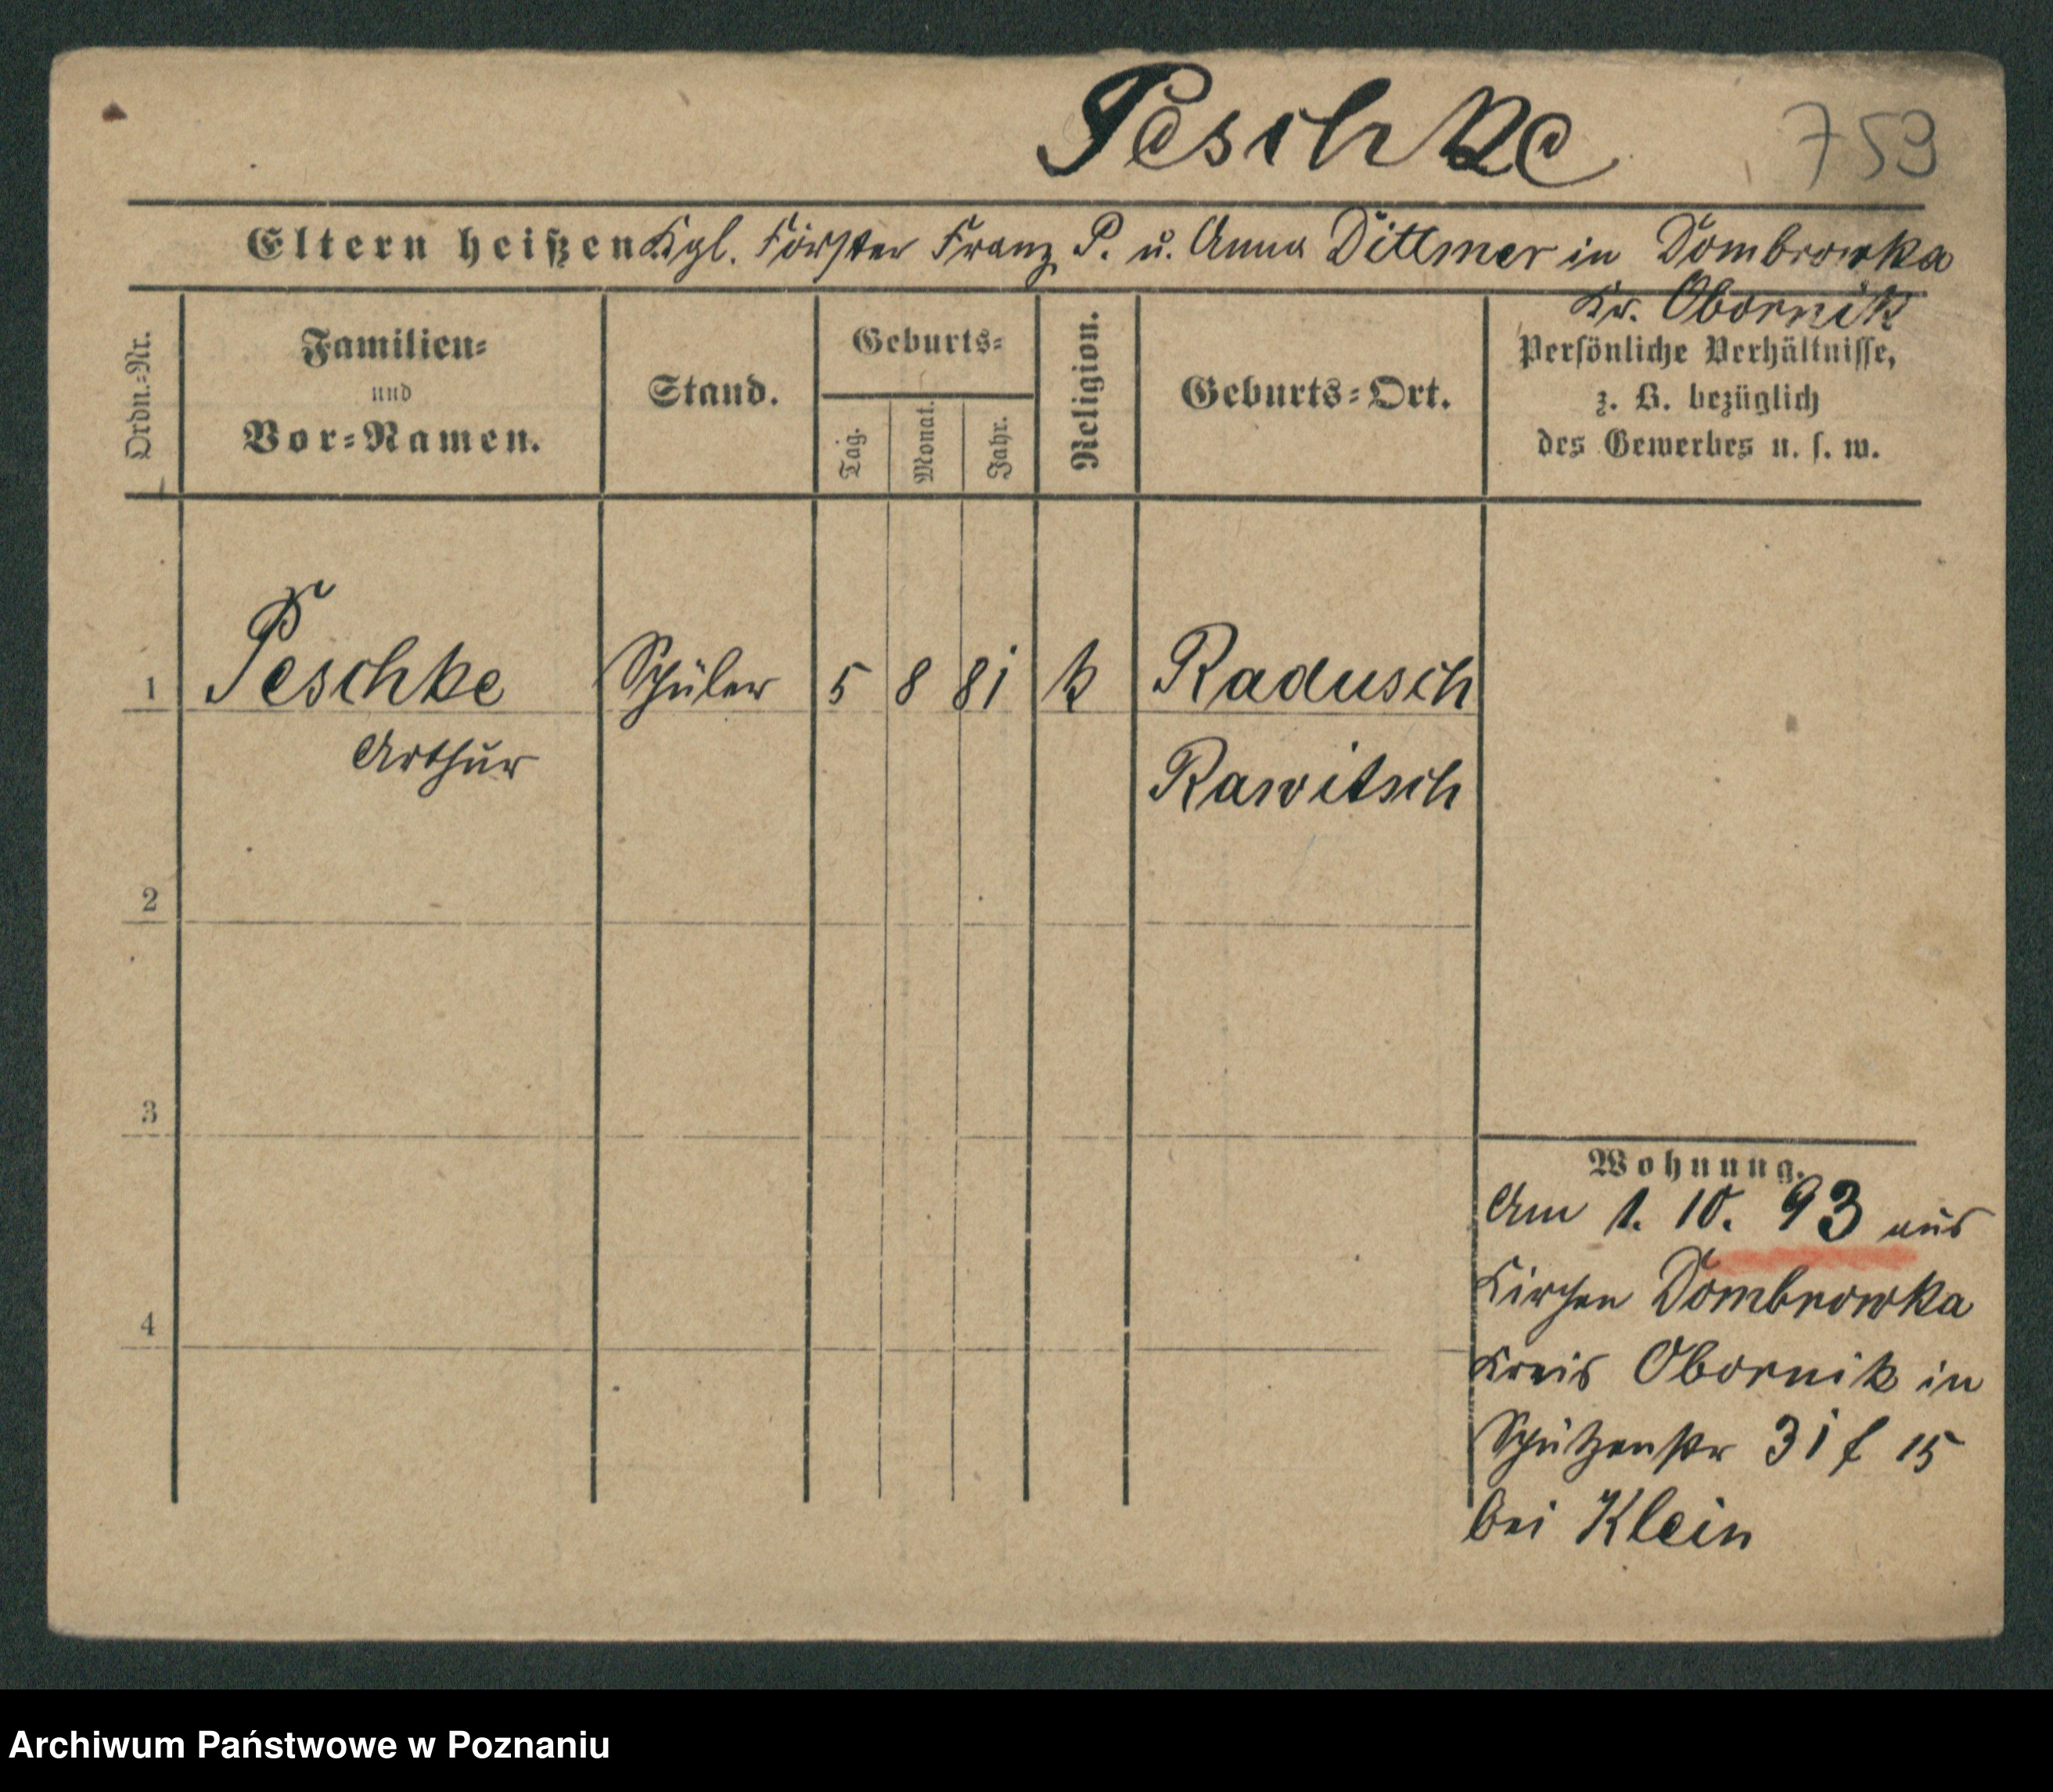 Peschke 753
Eltern heißen Kgl. Förster Franz P. u. Anna Dittmer in Dombrowka
Kr. Obornik
Ordn.=Nr.
Familien=
und
Vor=Namen.
Stand.
Geburts=
Tag.
Monat.
Jahr.
Religion.
Geburts=Ort.
Persönliche Verhältnisse,
z. B. bezüglich
des Gewerbes u. s. w.
1 Peschke Schüler 5 8 81 k Radusch
Arthur Rawitsch
2
3
4
Wohnung.
Am 1. 10. 93 aus
Kirchen Dombrowka
Kreis Obornik in
Schützenstr 31 f 15
bei Klein
Archiwum Państwowe w Poznaniu